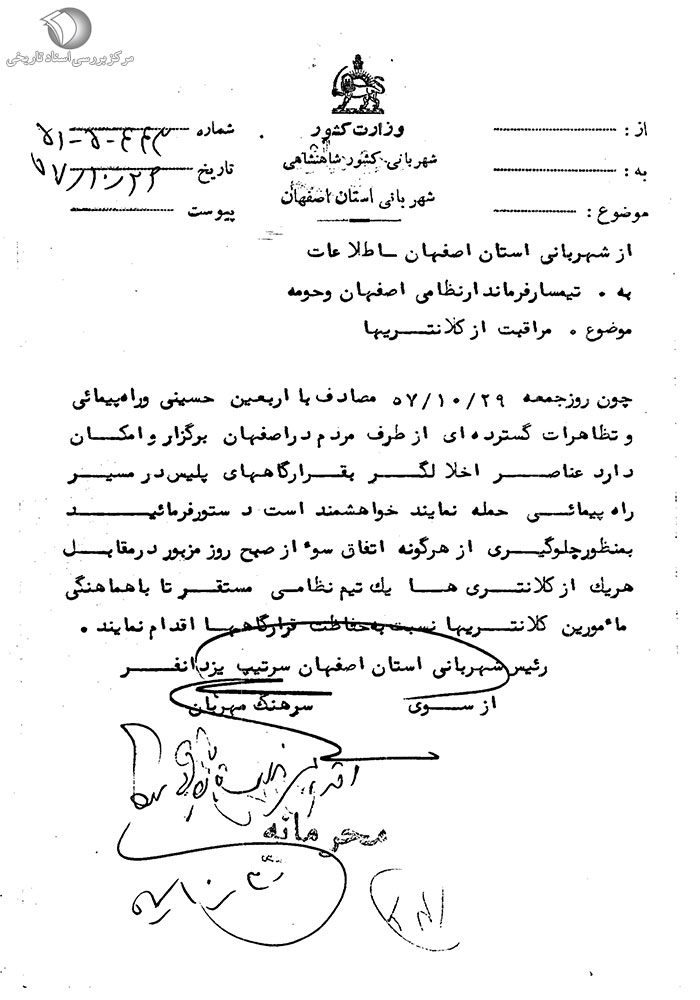 مرکز بررسی اسناد تاریخی
وزارت کشور
شهربانی کشور شاهنشاهی
شهربانی استان اصفهان
از :
به :
موضوع :
شماره
تاریخ ۵۷/۱۰/۲۹
پیوست
از شهربانی استان اصفهان ـ اطلاعات
به ٠ تیمسار فرماندار نظامی اصفهان وحومه
موضوع ٠ مراقبت از کلانتریها
چون روز جمعه ۵۷/۱۰/۲۹ مصادف با اربعین حسینی وراه پیمائی
و تظاهرات گسترده ای از طرف مردم در اصفهان برگزار و امکان
دارد عناصر اخلالگر بقرارگاههای پلیس در مسیر
راه پیمائی حمله نمایند خواهشمند است دستور فرمائید
بمنظور جلوگیری از هرگونه اتفاق سوء از صبح روز مزبور در مقابل
هریک از کلانتری ها یک تیم نظامی مستقر تا با هماهنگی
مأمورین کلانتریها نسبت به حفاظت قرارگاهها اقدام نمایند .
رئیس شهربانی استان اصفهان سرتیپ یزدانفر
از سوی سرهنگ مهربان
محرمانه